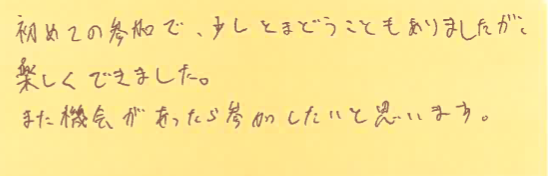 初めての参加で、少しとまどうこともありましたが、
楽しくできました。
また機会があったら参加したいと思います。